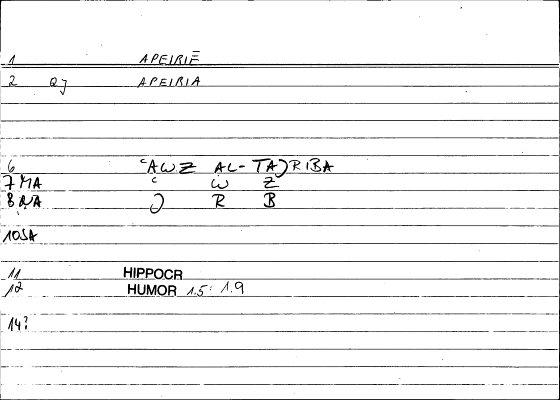 1 APEIRIĒ
2 Qj APEIRIA
6 ʿAWZ AL-TAJRIBA
7 MA ʿ W Z
8 NA J R B
10 SA
11 HIPPOCR
12 HUMOR 1.5: 1.9
14?